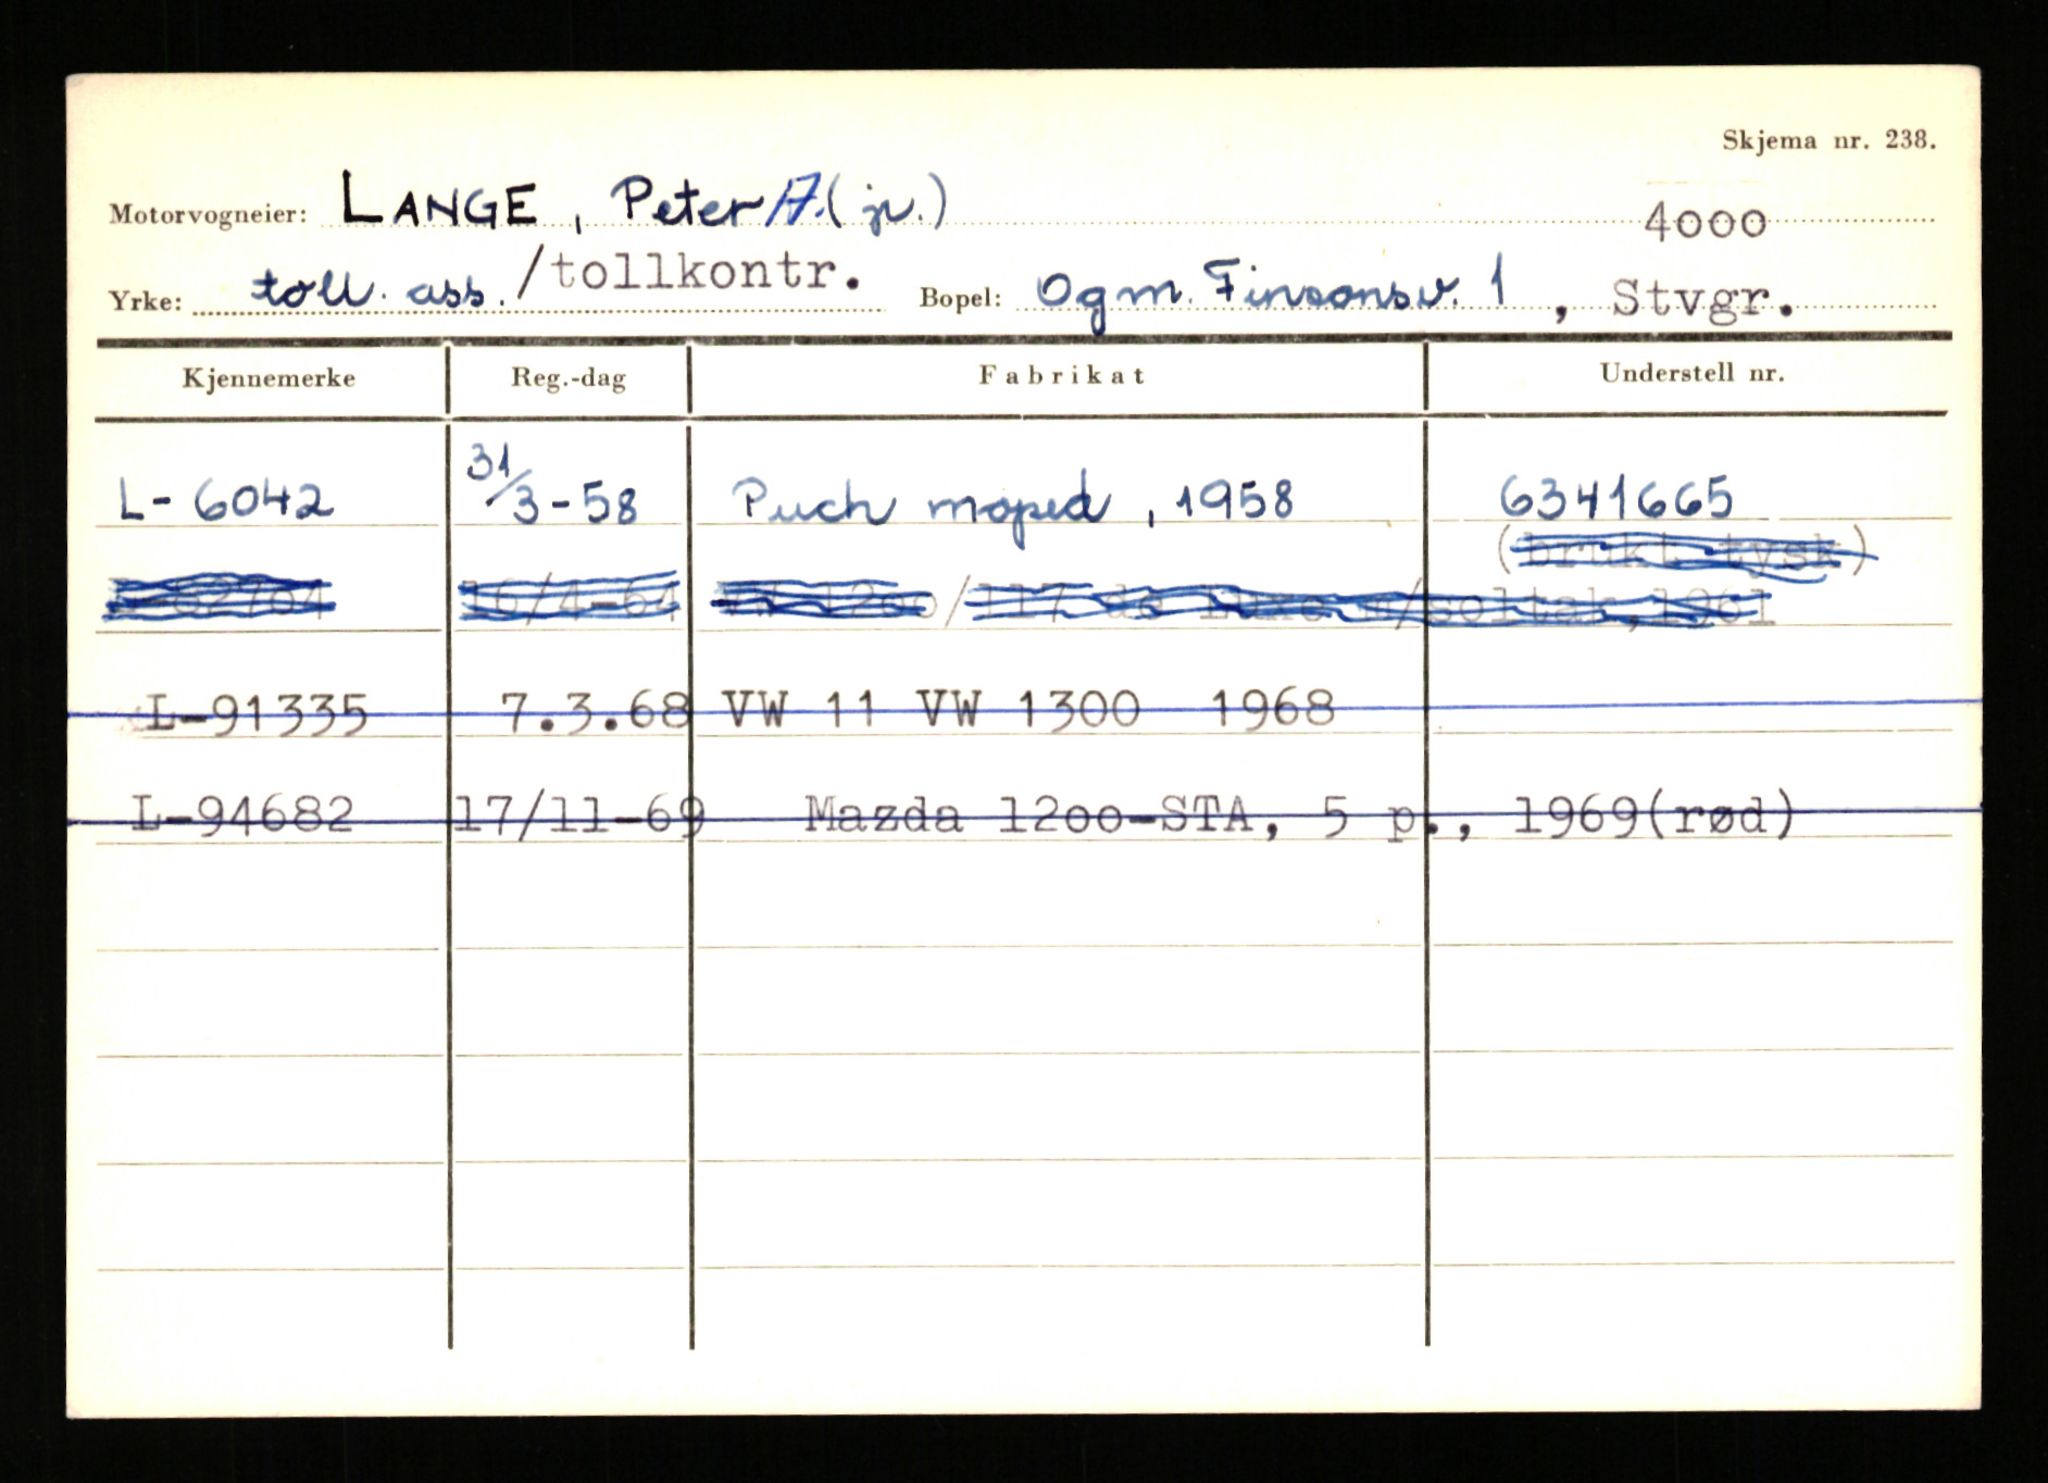 Skjema nr. 238.
Motorvogneier: LANGE, Peter A. (jr.) 4000
Yrke: toll. ass. /tollkontr. Bopel: Ogm. Finsonsv. 1, Stvgr.
Kjennemerke Reg.-dag Fabrikat Understell nr.
L- 6042 31/3-58 Puch moped, 1958 6341665
(brukt tysk)
16/4-64 1200/117 de Luxe m/soltak, 1961
L-91335 7.3.68 VW 11 VW 1300 1968
L-94682 17/11-69 Mazda 12oo-STA, 5 p., 1969(rød)